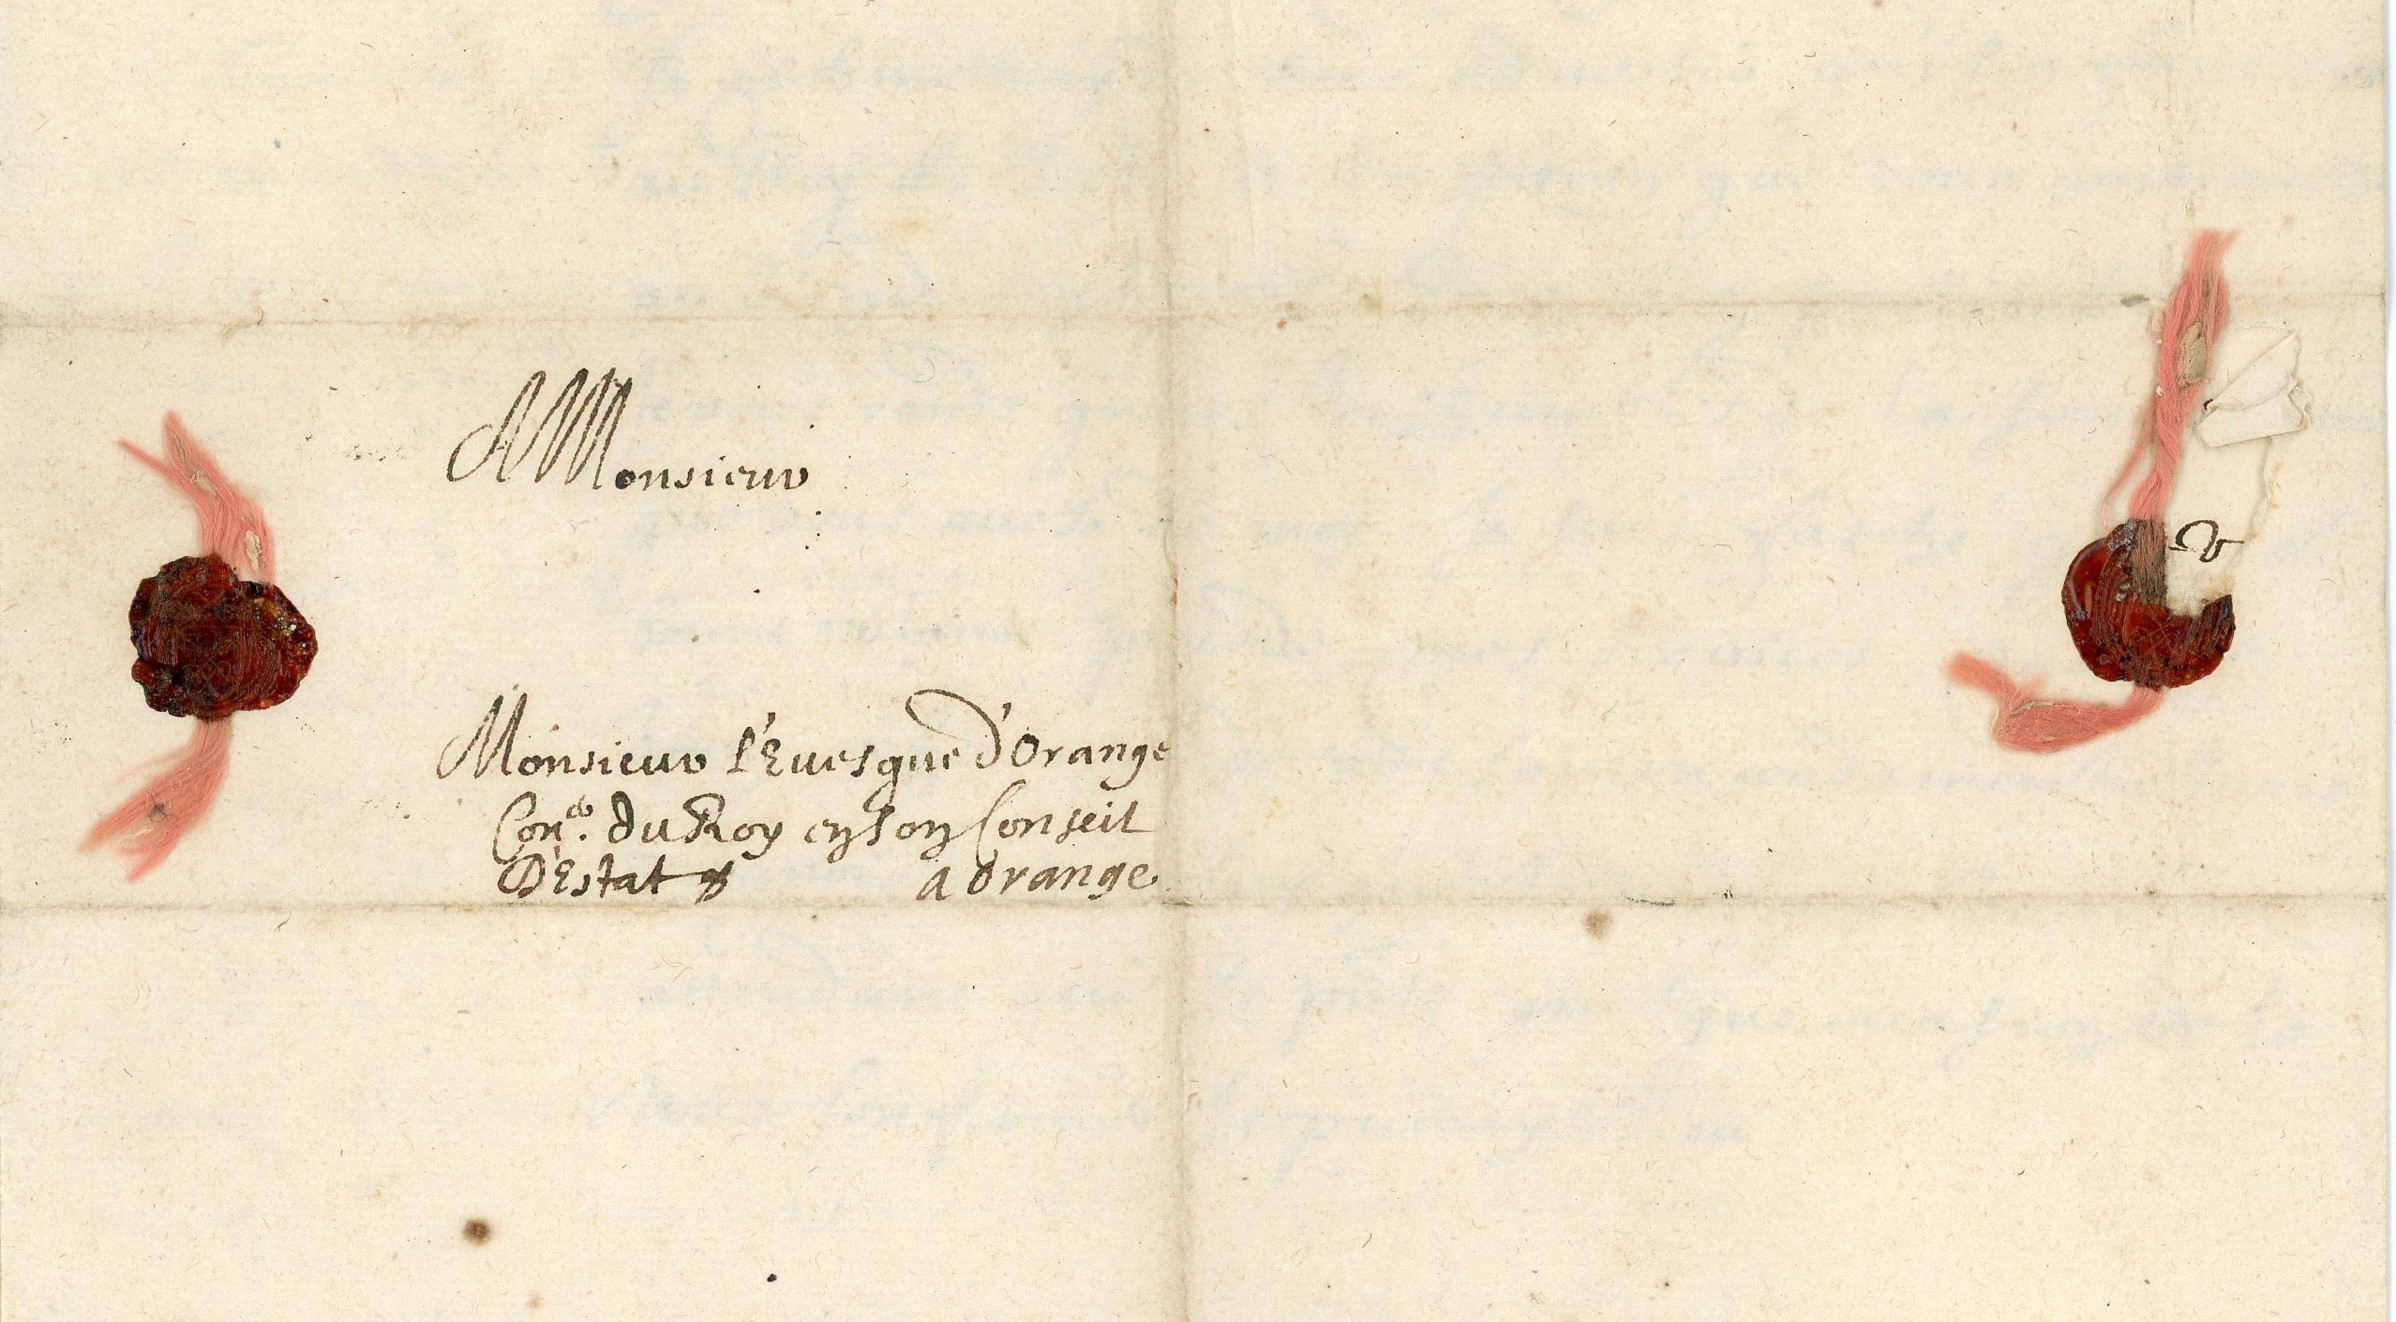 A Monsieur
Monsieur l'Euesque d'Orange
Con.er du Roy en son Conseil
D'Estat &
a Orange